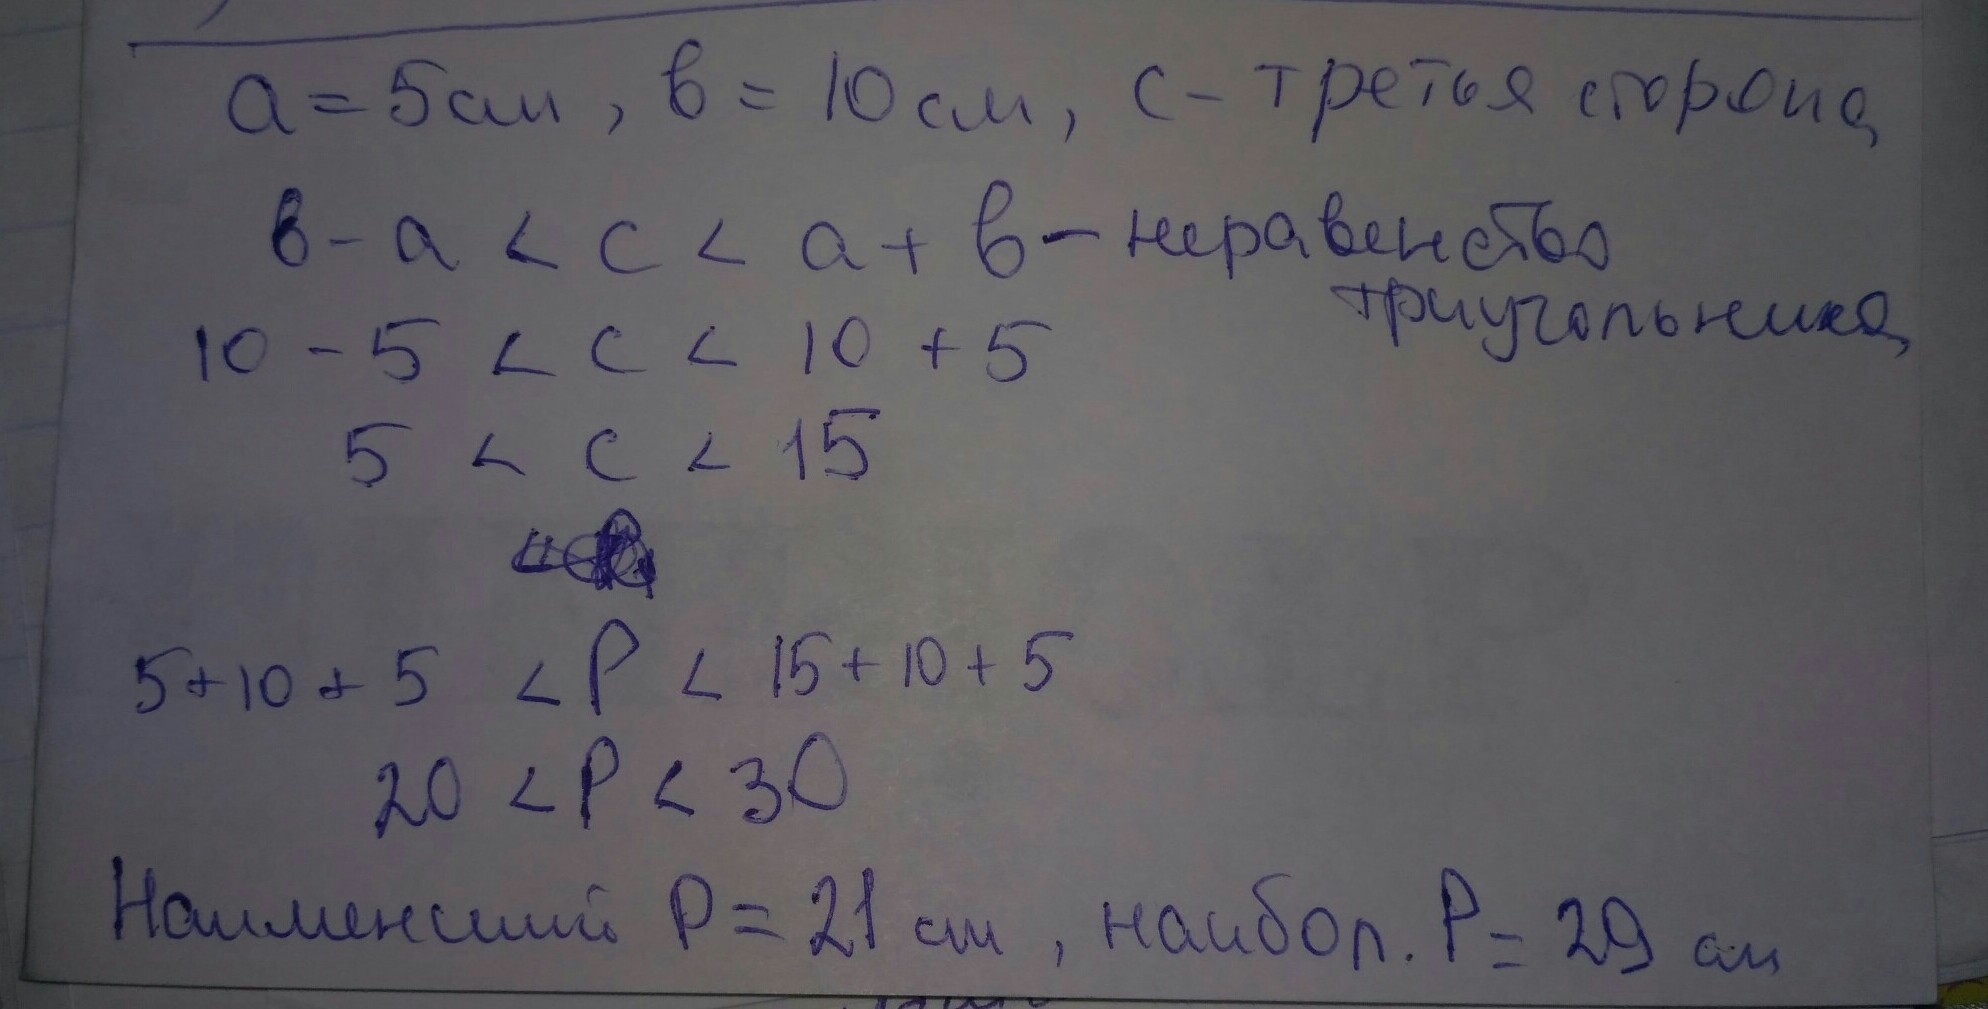 a = 5см, в = 10см, с - третья сторона
в - а < с < а + в - неравенство
триугольника
10 - 5 < с < 10 + 5
5 < с < 15
5 + 10 + 5 < P < 15 + 10 + 5
20 < P < 30
Наименший P = 21 см, наибол. P = 29 см